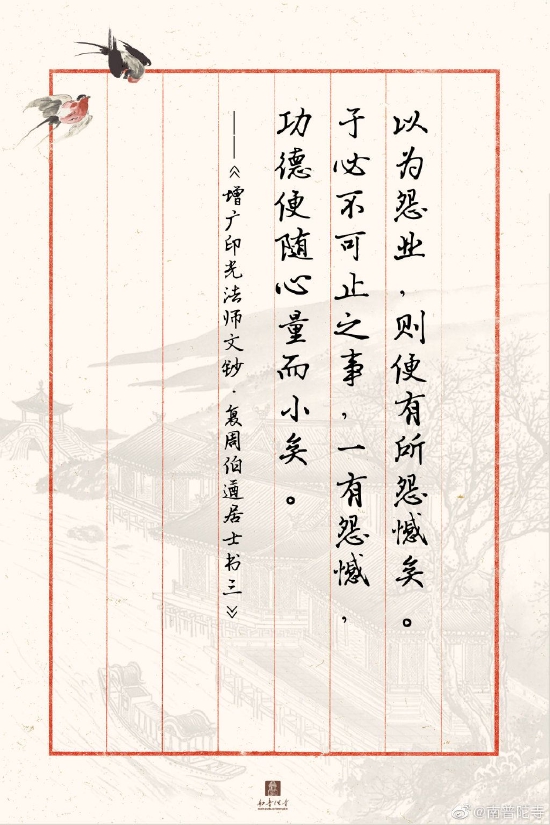 以为怨业，则便有所怨憾矣。
于必不可止之事，一有怨憾，
功德便随心量而小矣。
——《增广印光法师文钞·复周伯遒居士书三》
南普陀寺
@南普陀寺